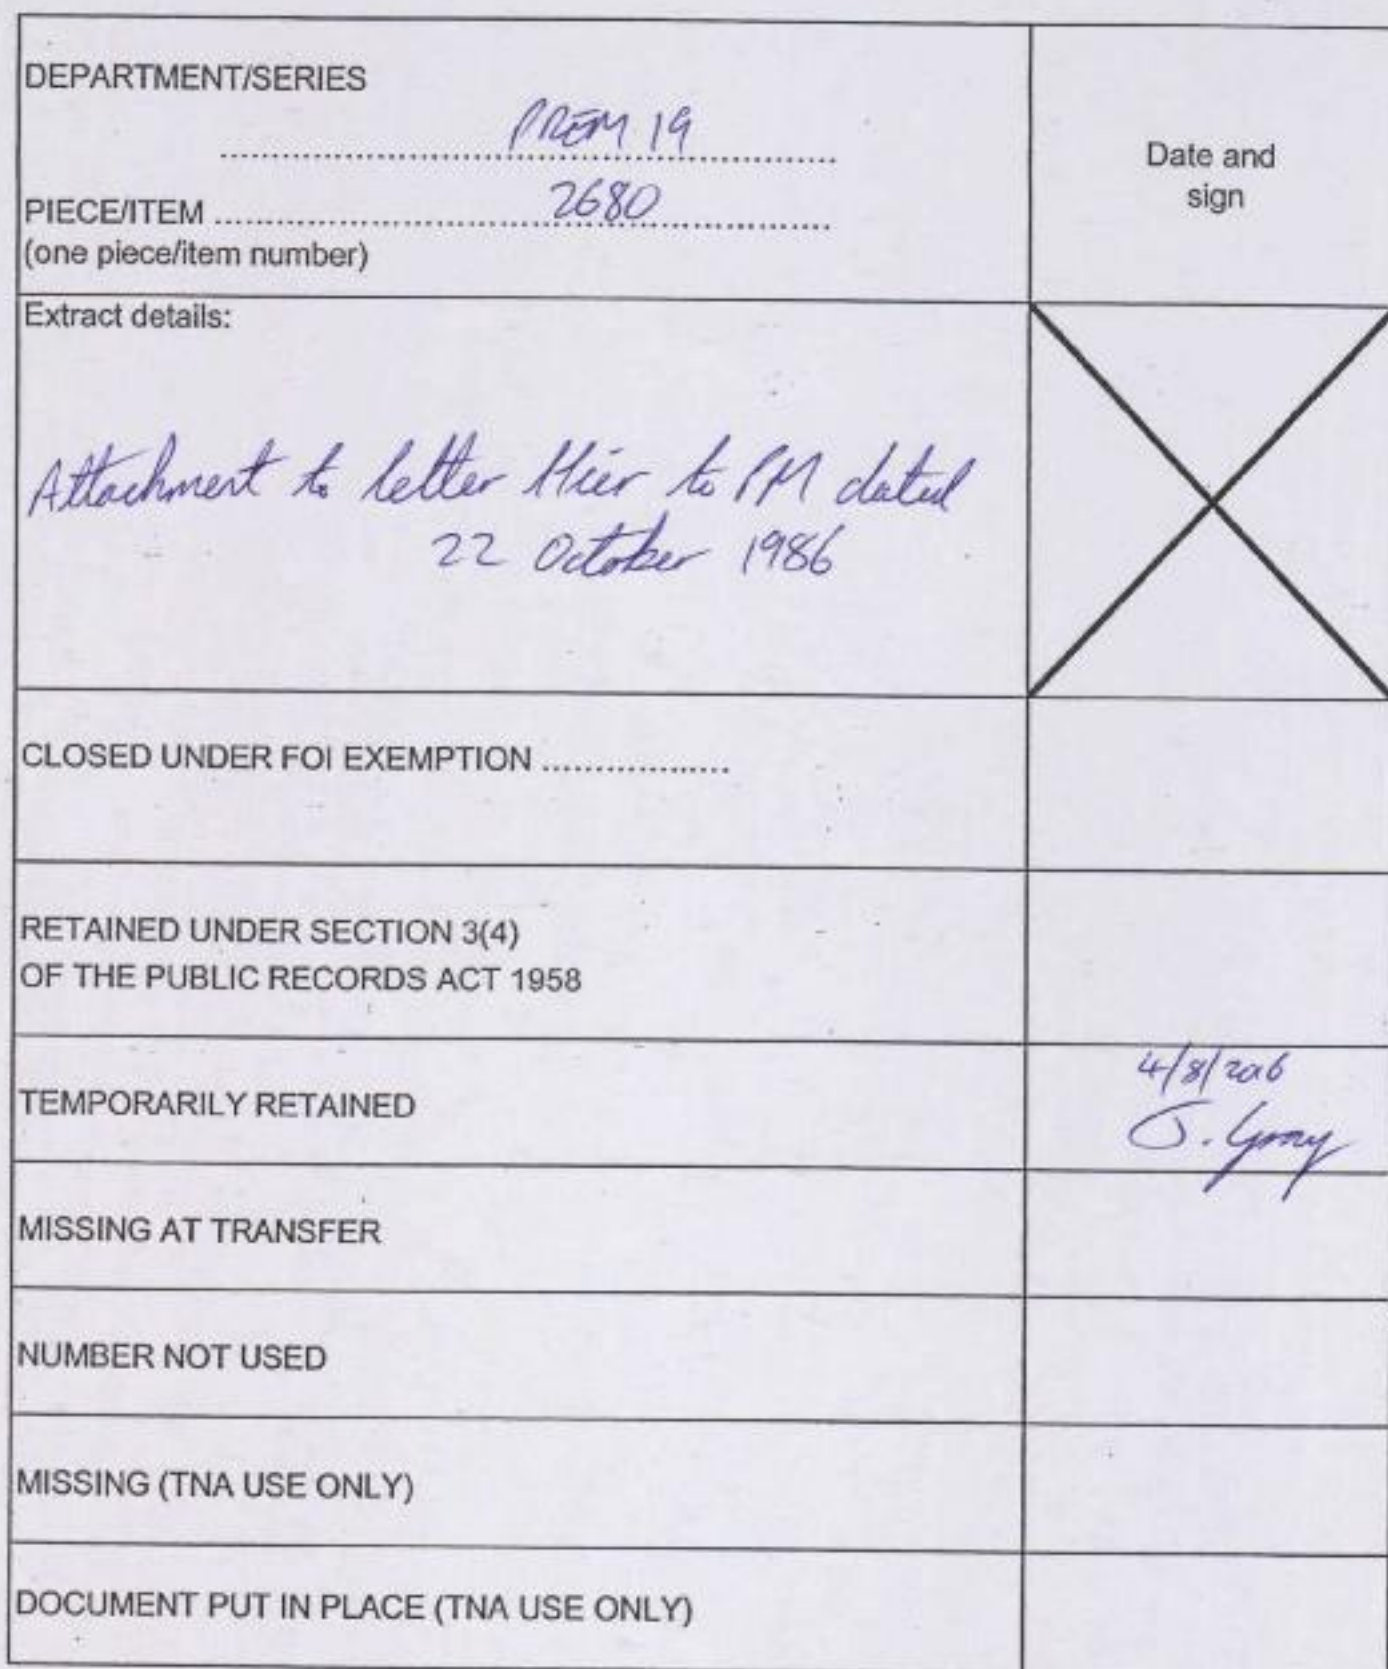 DEPARTMENT/SERIES
PREM 19
Date and
sign
PIECE/ITEM 2680
(one piece/item number)
Extract details:
Attachment to letter to PM dated
22 October 1986
CLOSED UNDER FOI EXEMPTION
RETAINED UNDER SECTION 3(4)
OF THE PUBLIC RECORDS ACT 1958
TEMPORARILY RETAINED
4/8/2016
J. Gray
MISSING AT TRANSFER
NUMBER NOT USED
MISSING (TNA USE ONLY)
DOCUMENT PUT IN PLACE (TNA USE ONLY)